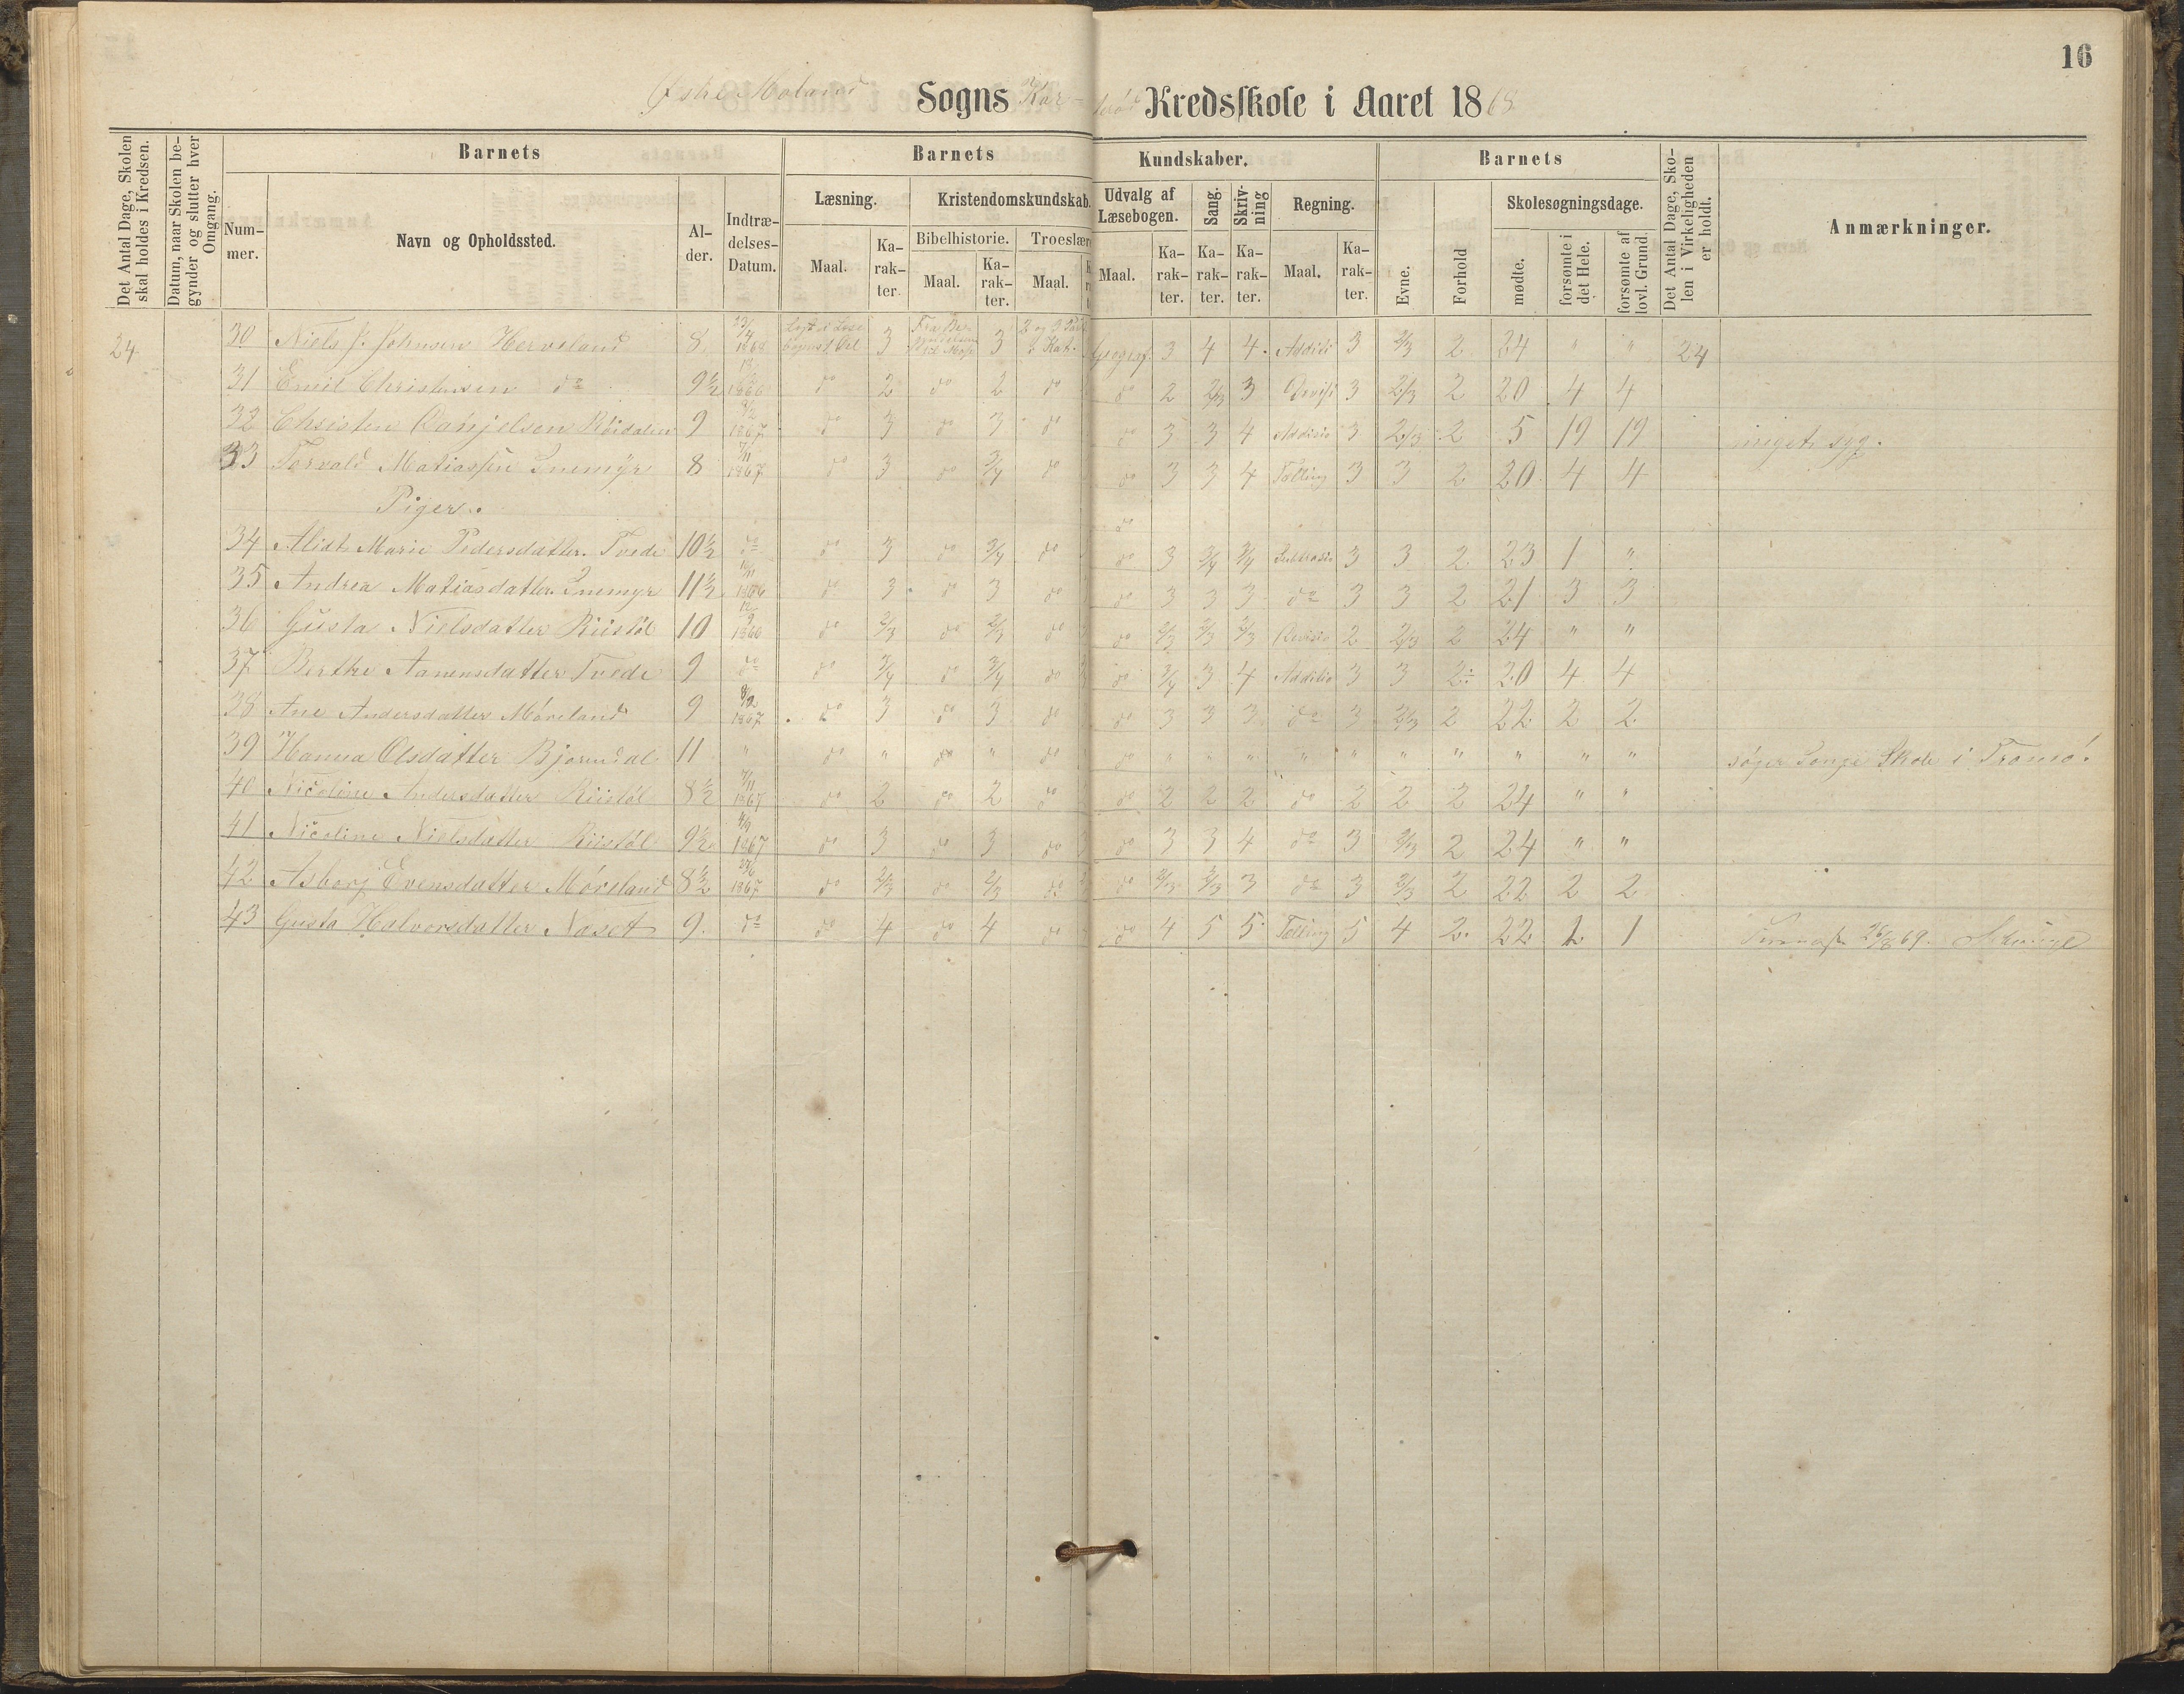 16
Østre Moland Sogns Kredsskole i Aaret 1868
Det Antal Dage, Skolen skal holdes i Kredsen.
Datum, naar Skolen begynder og slutter hver Omgang.
Barnets
Nummer.
Navn og Opholdssted.
Alder.
Indtrædelses-Datum.
Barnets Kundskaber.
Læsning.
Maal.
Karakter.
Kristendomskundskab.
Bibelhistorie.
Maal.
Karakter.
Troeslære
Maal.
Udvalg af Læsebogen.
Maal.
Karakter.
Sang.
Karakter.
Skrivning
Karakter.
Regning.
Maal.
Karakter.
Barnets
Evne.
Forhold
Skolesøgningsdage.
mødte.
forsømte i det Hele.
forsømte af lovl. Grund.
Det Antal Dage, Skolen i Virkeligheden er holdt.
Anmærkninger.
24 30 Niels J. Johnsen Herveland 8 23/4 1868 3 3 2 og 3 Part Geograf. 3 4 4. Additi 3 2/3 2 24 " " 24
31 Emil Christensen do 9½ do 2 do 2 do do 2 2/3 3 3 2/3 2 20 4 4
32 Christen Danjelsen Röidalen 9 1867 do 3 do 3 do do 3 3 4 Addisio 3 2/3 2 5 19 19 meget syg.
33 Torvald Matiassen Inmyr 8 7/11 1867 do 3 do 3/4 do do 3 3 4 Tælling 3 3 2 20 4 4
Piger.
34 Alidt Marie Pedersdatter Tvede 10½ do do 3 do 3/4 do do 3 3/4 3/4 Subtrasio 3 3 2 23 1 "
35 Andrea Matiasdatter Inmyr 11½ do 3 do 3 do do 3 3 3 do 3 3 2 21 3 3
36 Gusta Nielsdatter Riistöl 10 do 2/3 do 2/3 do do 2/3 2/3 2/3 2 2/3 2 24 " "
37 Berthe Aanensdatter Tvede 9 do do 3/4 do 3/4 do do 3/4 3 4 Additio 3 3 2 20 4 4
38 Ane Andersdatter Möreland 9 1867 do 3 do 3 do do 3 3 3 do 3 2/3 2 22 2 2
39 Hanna Olsdatter Bjørndal 11 " do " do " do do " " " " " " " " " " söger Songe Skole i Tromö.
40 Nicoline Andersdatter Riistöl 8½ 7/11 1867 do 2 do 2 do do 2 2 2 do 2 2 2 24 " "
41 Nicoline Nielsdatter Riistöl 9½ 1867 do 3 do 3 do do 3 3 4 do 3 2/3 2 24 " "
42 Asborg Evensdatter Möreland 8½ 1867 do 2/3 do 2/3 do do 2/3 2/3 3 do 3 2/3 2 22 2 2
43 Gusta Halvorsdatter Naset 9. do do 4 do 4 do do 4 5 5 Tælling 5 4 2. 22 1 26/8 69.